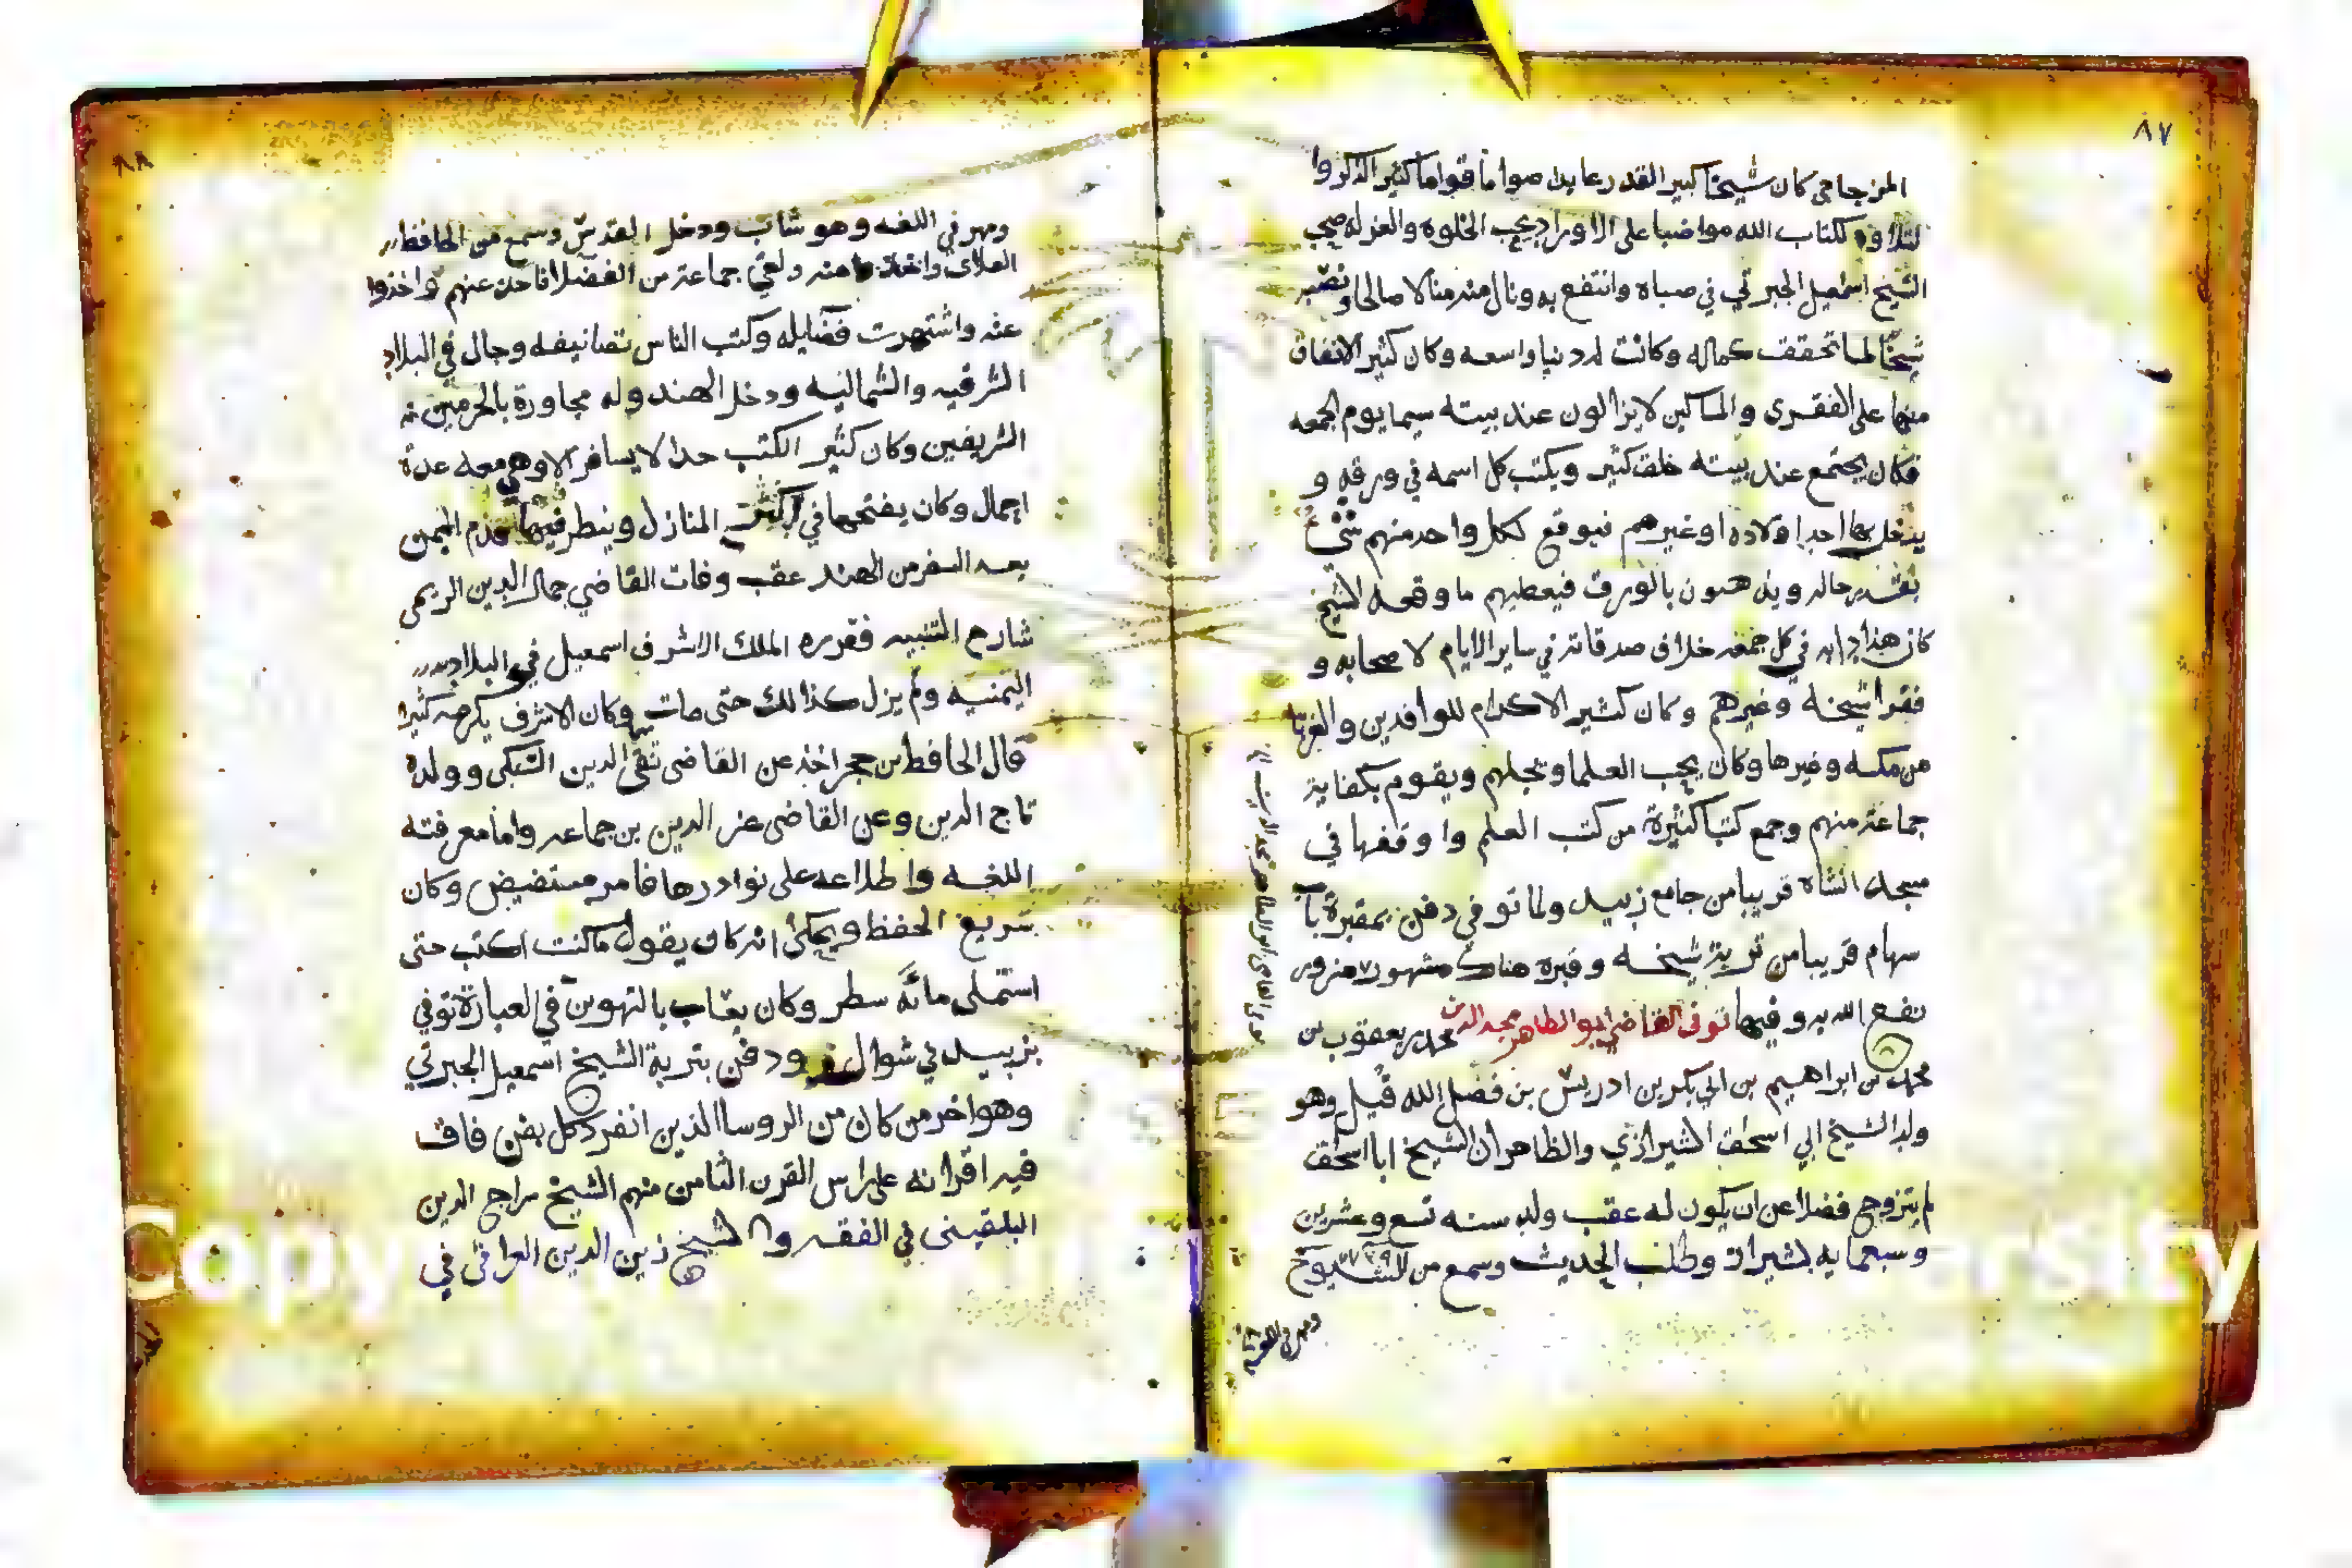 ٨٧
المزجاجي كان شيخا كبير القدر عابدا صواما قواما كثير الذكر وا
لتلاوه لكتاب الله مواضبا على الاوراد يحب الخلوه والعزله صحب
الشيخ اسمعيل الجبرتي في صباه وانتفع به ونال منه منالا صالحا ونصبه
شيخا لما تحقق كماله وكانت له دنيا واسعه وكان كثير الانفاق
منها على الفقرى والمساكين لايزالون عند بيته سيما يوم الجمعه
فكان يجتمع عند بيته خلق كثير ويكتب كل اسمه في ورقه و
يدخل بها احد اولاده او غيرهم فيوقع لكل واحد منهم شئ
بقدر حاله ويذهبون بالورق فيعطيهم ما وقعه الشيخ
كان هذا دابه في كل جمعه خلاف صدقاته في ساير الايام لاصحابه و
فقرا شيخه وغيرهم وكان كثير الاكرام للوافدين والغربا
من مكه وغيرها وكان يحب العلما ويجلهم ويقوم بكفاية
جماعة منهم وجمع كتبا كثيرة من كتب العلم واوقفها في
مسجد الشاه قريبا من جامع زبيد ولما توفي دفن بمقبرة باب
سهام قريبا من تربة شيخه وقبره هناك مشهور مزور
نفع الله به وفيها توفى القاضي ابو الطاهر مجد الدين محمد بن يعقوب بن
محمد بن ابراهيم بن ابي بكر بن ادريس بن فضل الله قيل وهو
ولد الشيخ ابي اسحق الشيرازي والظاهر ان الشيخ ابا اسحق
لم يتزوج فضلا عن ان يكون له عقب ولد سنه تسع وعشرين
وسبعمايه بشيراز وطلب الحديث وسمع من الشيوخ
ومهر في اللغه
٨٨
ومهر في اللغه وهو شاب ودخل القدس وسمع من الحافظ
العلائ واخذ منه ولقي جماعة من الفضلا فاخذ عنهم واخذوا
عنه واشتهرت فضايله وكتب الناس تصانيفه وجال في البلاد
الشرقيه والشماليه ودخل الهند وله مجاورة بالحرمين
الشريفين وكان كثير الكتب جدا لا يسافر الا وهي معه عدة
اجمال وكان يفتحها في اكثر المنازل وينظر فيها قدم اليمن
بعد السفر من الهند عقب وفات القاضي جمال الدين الريمي
شارح التنبيه فقرره الملك الاشرف اسمعيل في البلاد
اليمنيه ولم يزل كذالك حتى مات وكان الاشرف يكرمه كثيرا
قال الحافظ بن حجر اخذ عن القاضي تقي الدين السبكى وولده
تاج الدين وعن القاضى عز الدين بن جماعه واما معرفته
اللغه واطلاعه على نوادرها فامر مستفيض وكان
سريع الحفظ ويحكى انه كان يقول ما كنت اكتب حتى
استملى مائة سطر وكان يعاب بالتهوين في العبارة توفي
بزبيد في شوال ودفن بتربة الشيخ اسمعيل الجبرتي
وهو اخر من كان من الروسا الذين انفرد كل بفن فاق
فيه اقرانه على راس القرن الثامن منهم الشيخ سراج الدين
البلقيني في الفقه والشيخ زين الدين العراقي في